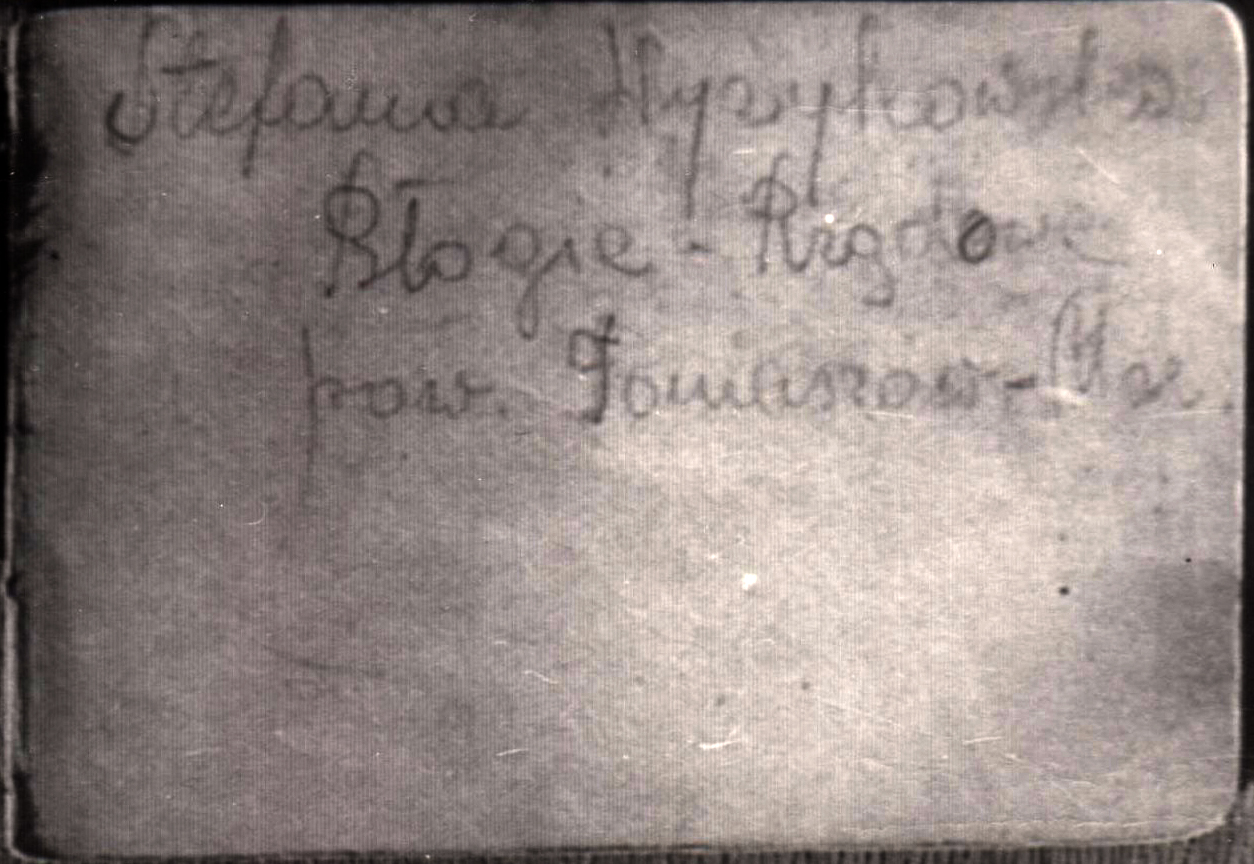 Stefania
Błogie - Rządowe
pow. Tomaszów-Maz.